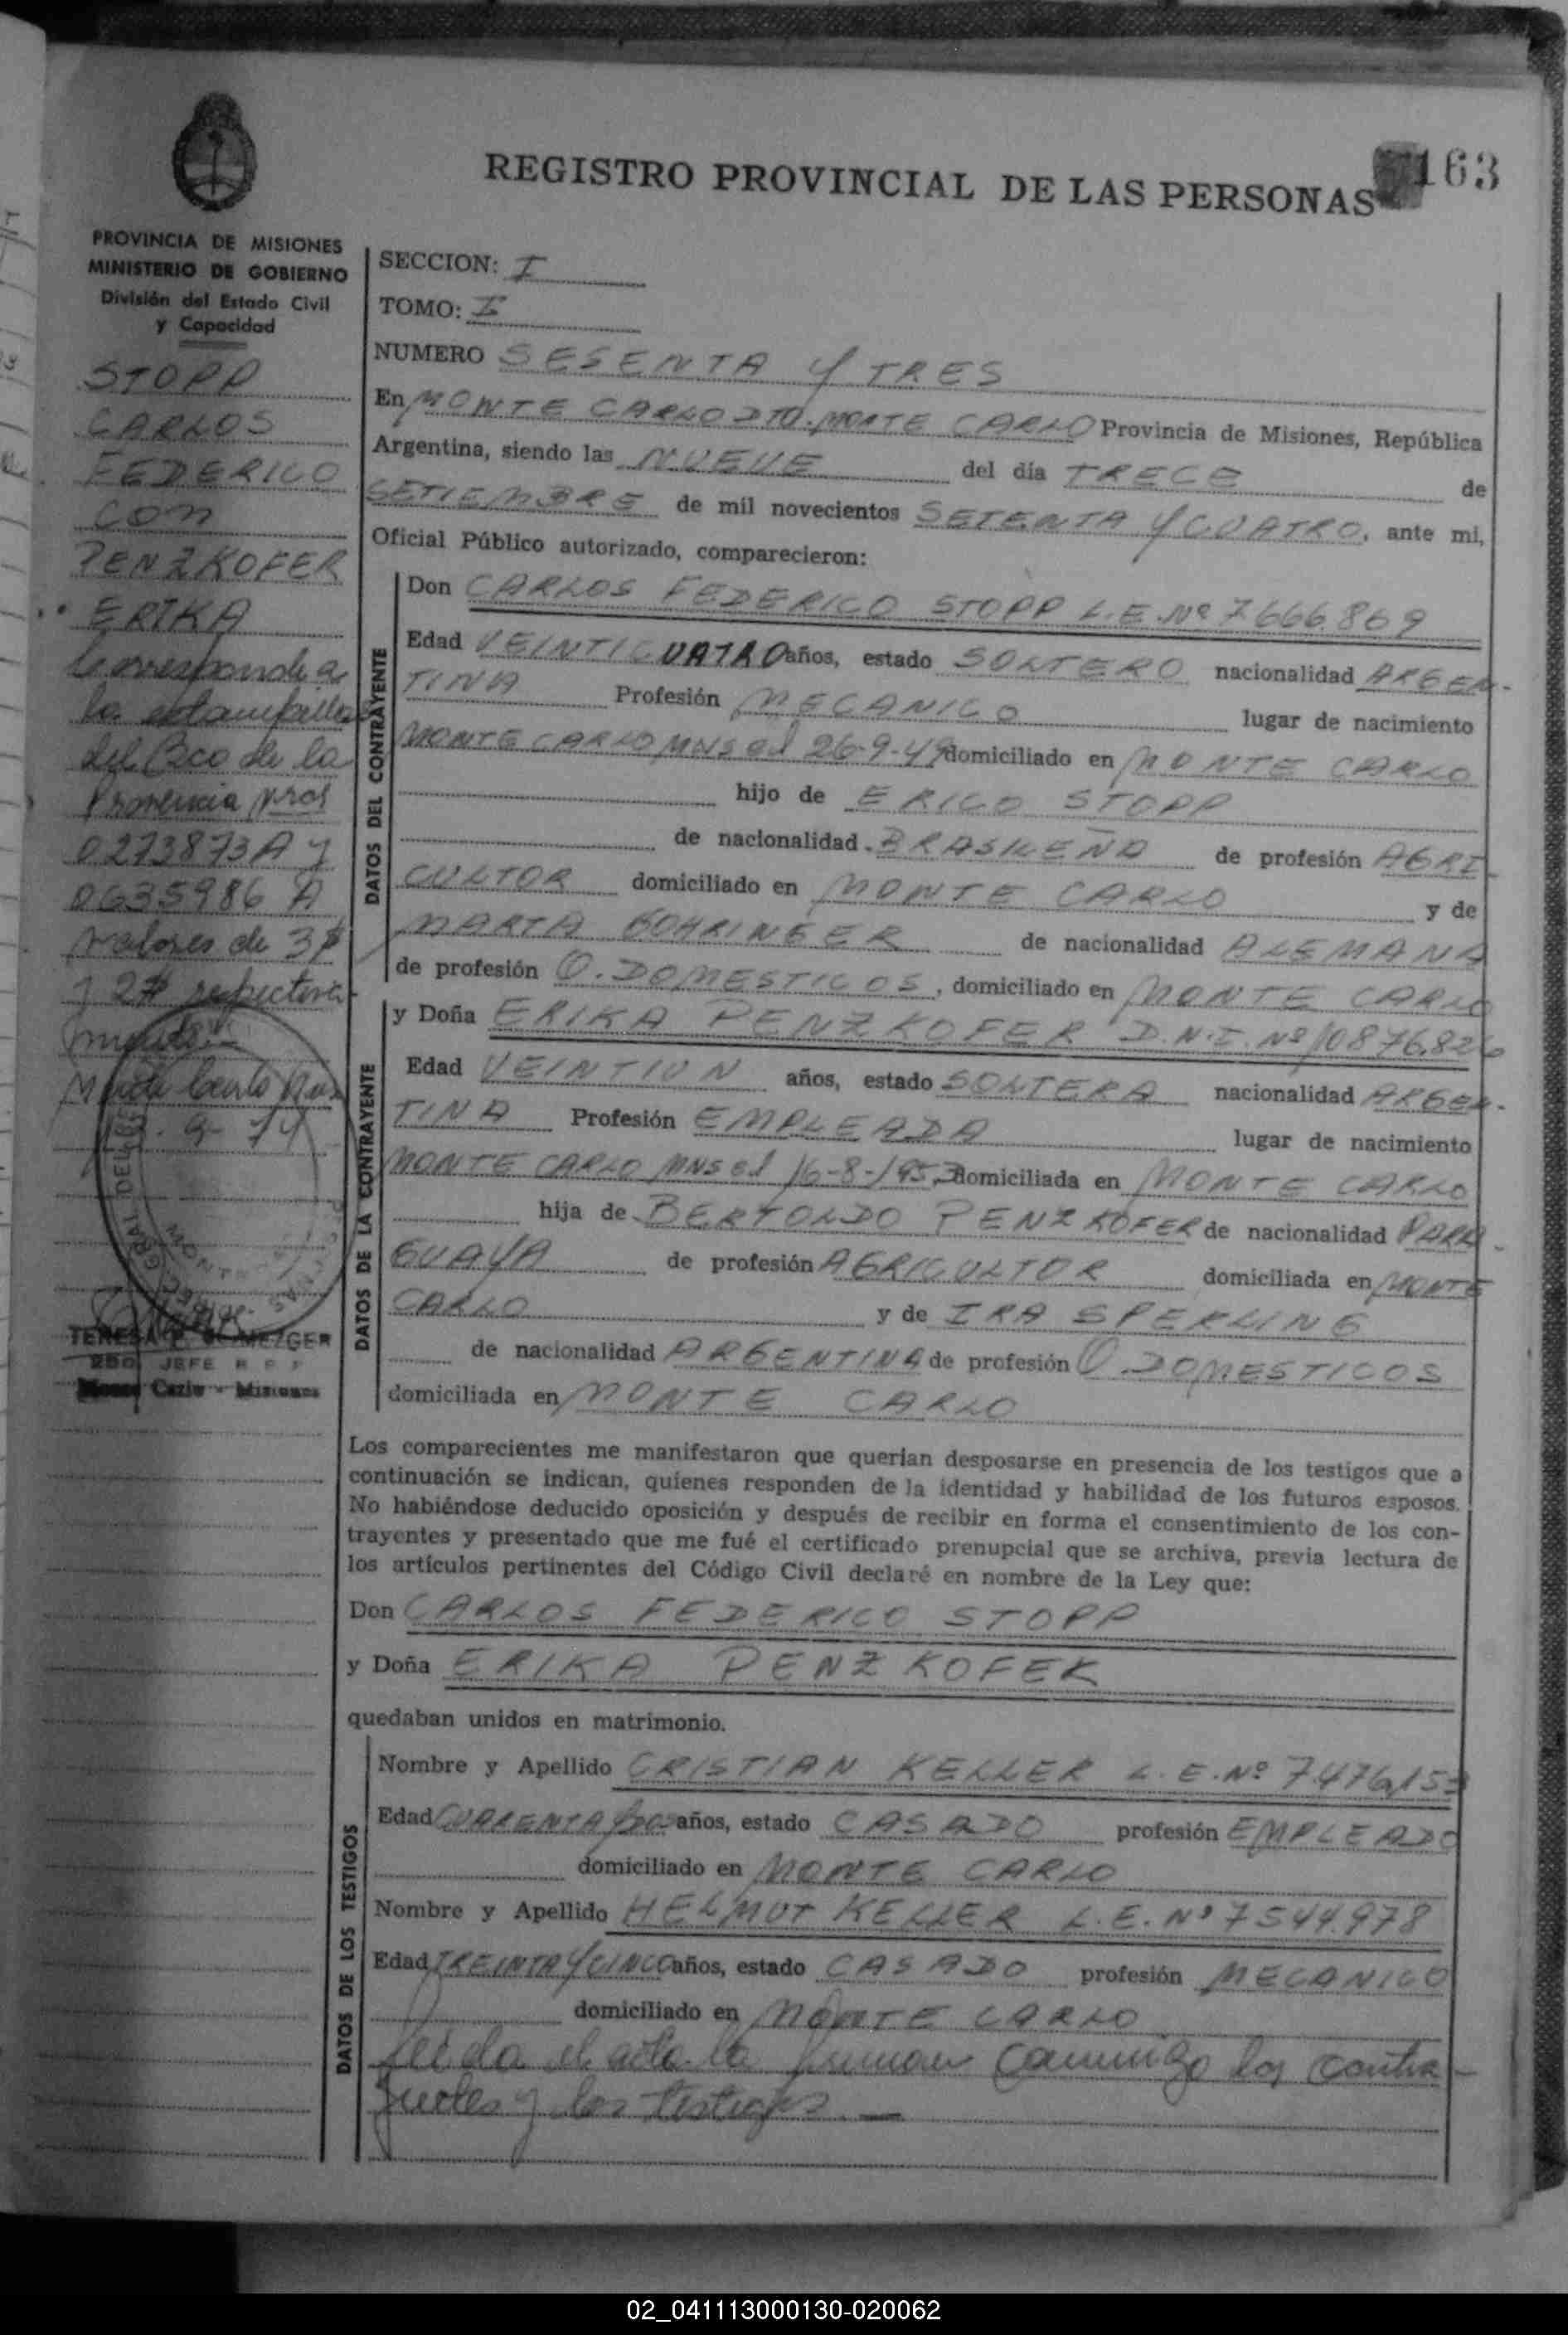 163
REGISTRO PROVINCIAL DE LAS PERSONAS
PROVINCIA DE MISIONES
MINISTERIO DE GOBIERNO
División del Estado Civil
y Capacidad
STOPP
CARLOS
FEDERICO
con
PENZKOFER
ERIKA
Corresponde a
la estampilla
del Bco de la
Provincia nros
0273873A y
0635986 A
valores de 3$
y 2$ respectiva
mente
Monte Carlo
9-74
TERESA METZGER
JEFE R P P
Monte Carlo - Misiones
SECCION: I
TOMO: I
NUMERO SESENTA Y TRES
En MONTE CARLO DTO. MONTE CARLO Provincia de Misiones, República
Argentina, siendo las NUEVE del día TRECE de
SETIEMBRE de mil novecientos SETENTA Y CUATRO, ante mi,
Oficial Público autorizado, comparecieron:
DATOS DEL CONTRAYENTE
Don CARLOS FEDERICO STOPP L.E.Nº 7.666.869
Edad VEINTICUATRO años, estado SOLTERO nacionalidad ARGEN-
TINA Profesión MECANICO lugar de nacimiento
MONTE CARLO MNS el 26-9-49 domiciliado en MONTE CARLO
hijo de ERICO STOPP
de nacionalidad BRASILEÑA de profesión AGRI-
CULTOR domiciliado en MONTE CARLO y de
MARTA BOHRINGER de nacionalidad ALEMANA
de profesión Q. DOMESTICOS, domiciliado en MONTE CARLO
DATOS DE LA CONTRAYENTE
y Doña ERIKA PENZKOFER D.N.I. Nº 10876.826
Edad VEINTIUN años, estado SOLTERA nacionalidad ARGEN-
TINA Profesión EMPLEADA lugar de nacimiento
MONTE CARLO MNS el 16-8-1953 domiciliada en MONTE CARLO
hija de BERTOLDO PENZKOFER de nacionalidad PARA-
GUAYA de profesión AGRICULTOR domiciliada en MONTE
CARLO y de IRA SPERLING
de nacionalidad ARGENTINA de profesión Q DOMESTICOS
domiciliada en MONTE CARLO
Los comparecientes me manifestaron que querían desposarse en presencia de los testigos que a
continuación se indican, quienes responden de la identidad y habilidad de los futuros esposos.
No habiéndose deducido oposición y después de recibir en forma el consentimiento de los con-
trayentes y presentado que me fué el certificado prenupcial que se archiva, previa lectura de
los artículos pertinentes del Código Civil declaré en nombre de la Ley que:
Don CARLOS FEDERICO STOPP
y Doña ERIKA PENZKOFER
quedaban unidos en matrimonio.
DATOS DE LOS TESTIGOS
Nombre y Apellido CRISTIAN KELLER L.E.Nº 7.476.153
Edad CUARENTA Y DOS años, estado CASADO profesión EMPLEADO
domiciliado en MONTE CARLO
Nombre y Apellido HELMUT KELLER L.E.Nº 7544.978
Edad TREINTA Y CINCO años, estado CASADO profesión MECANICO
domiciliado en MONTE CARLO
Leida el acta la firman conmigo los contra-
yentes y los testigos. —
02_041113000130-020062